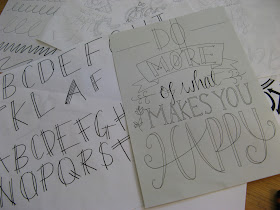 BCDEF
KLAF
BCDEFG
NOPQRS
DO
MORE
of what
MAKES YOU
HAPPY